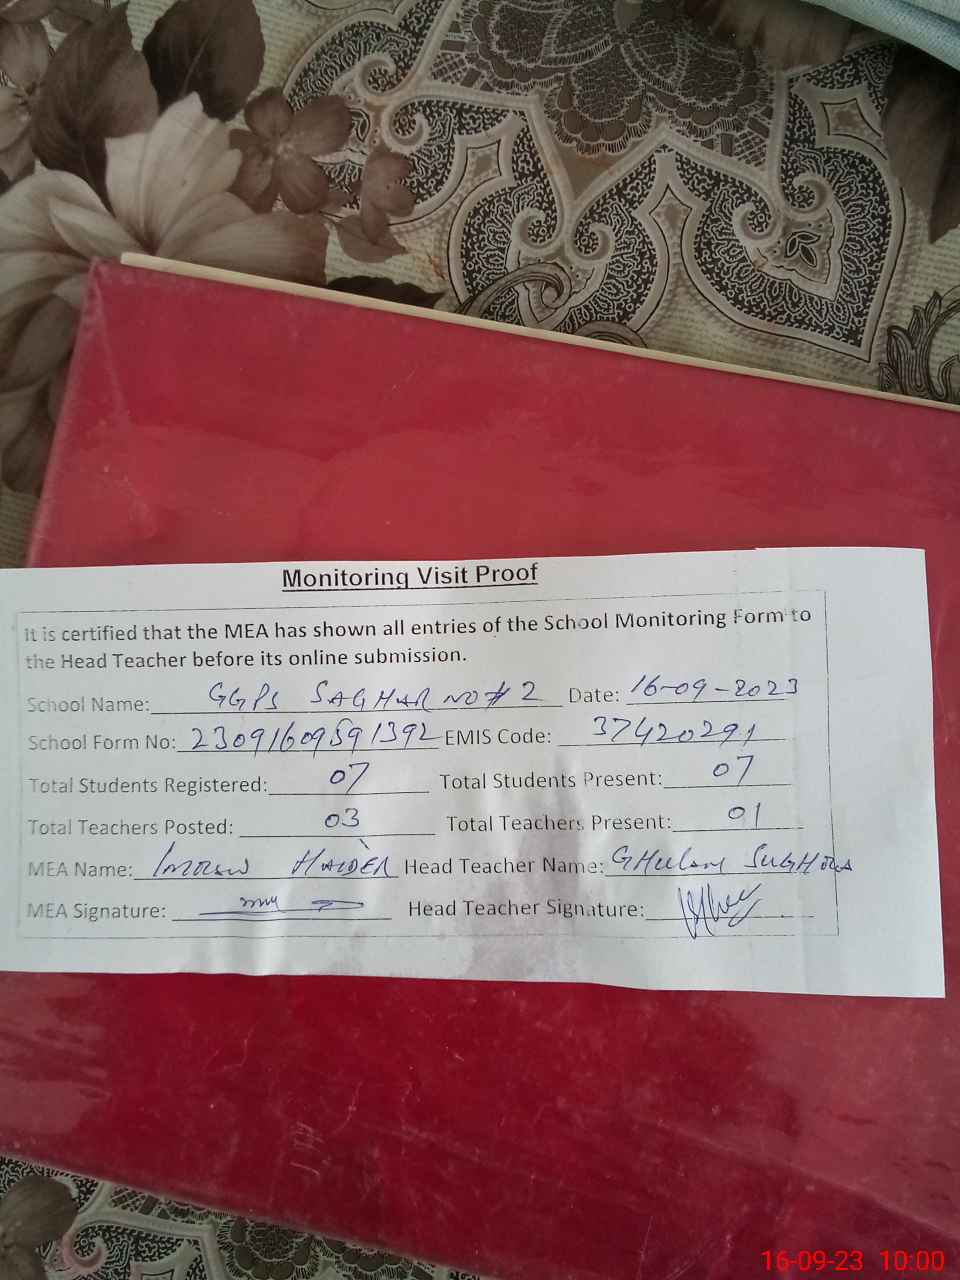 Monitoring Visit Proof
It is certified that the MEA has shown all entries of the School Monitoring Form to
the Head Teacher before its online submission.
School Name: GGPS SAGHAR NO # 2 Date: 16-09-2023
School Form No: 23091609591392 EMIS Code: 37420291
Total Students Registered: 07 Total Students Present: 07
Total Teachers Posted: 03 Total Teachers Present: 01
MEA Name: IMRAN HAIDER Head Teacher Name: GHULAM SUGHRA
MEA Signature: Head Teacher Signature:
16-09-23 10:00